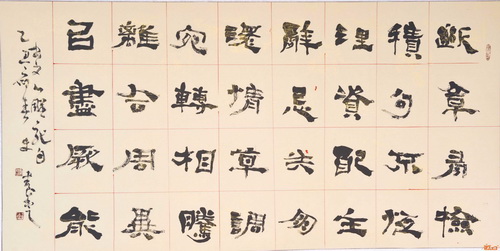 斷章有檢
積句不恆
理資配主
辭忌失朋
環情草調
宛轉相騰
離合同異
以盡厥能
文心雕龍句